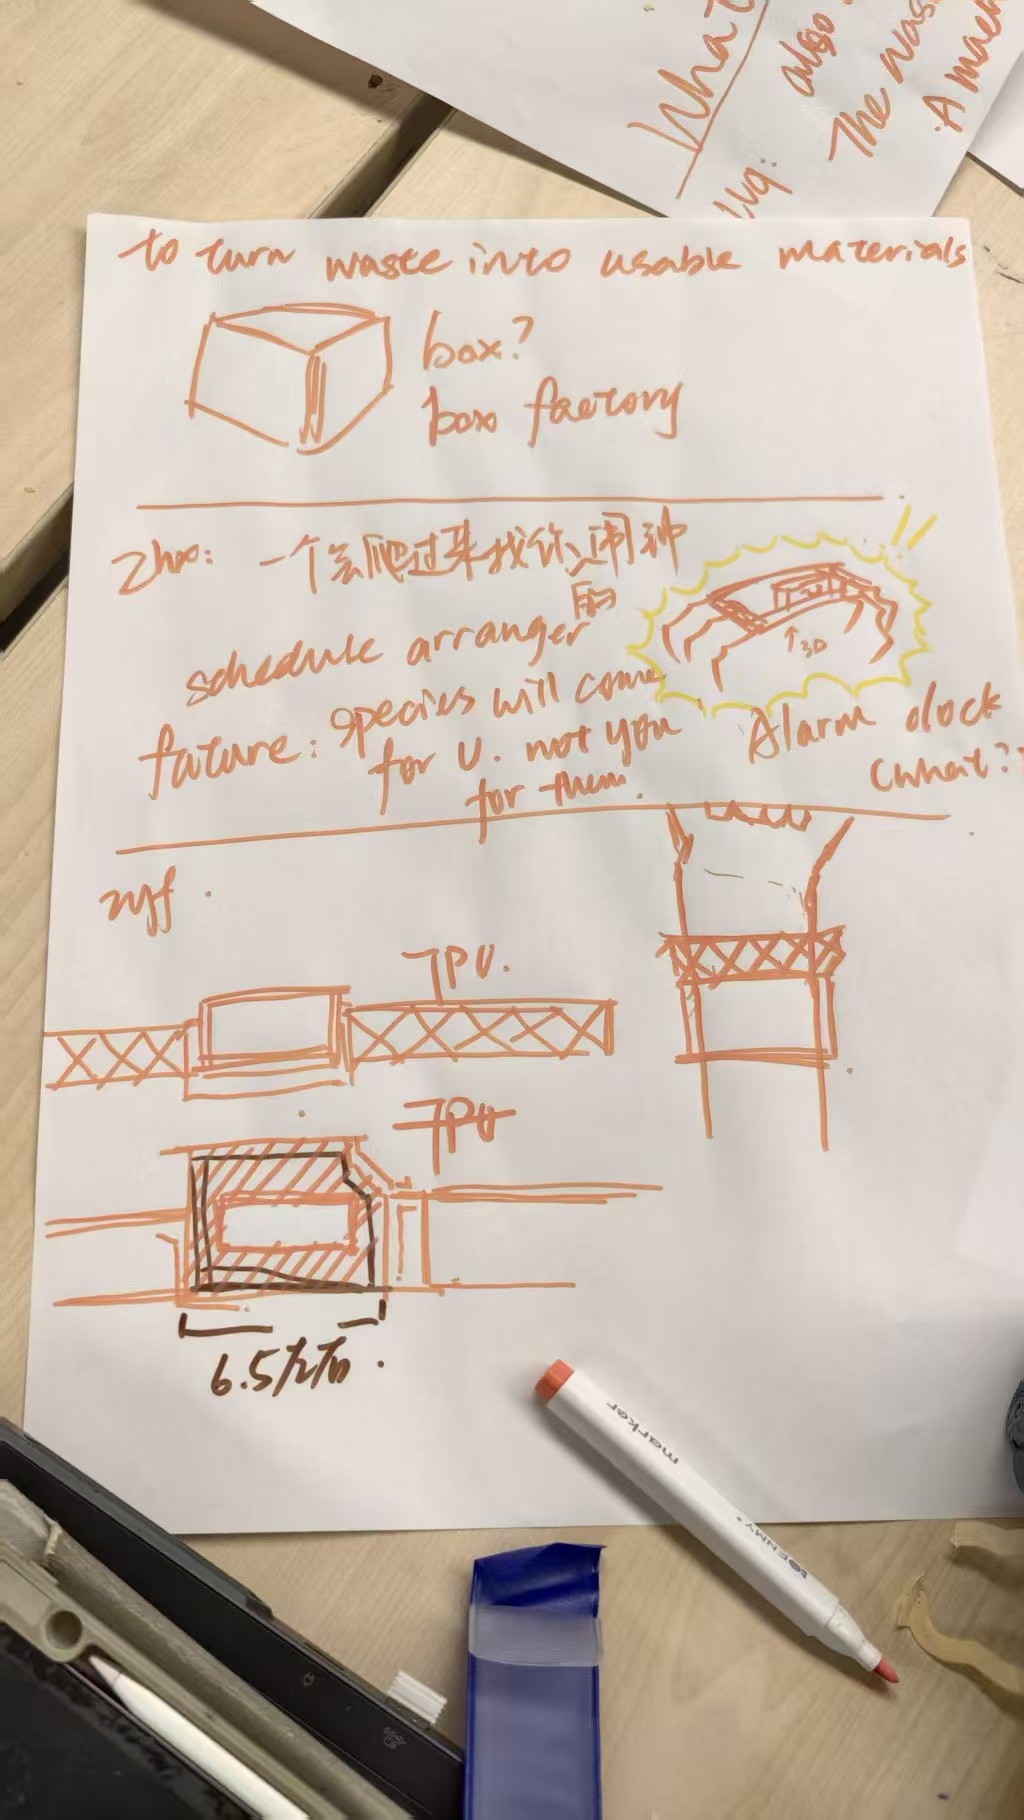 What
also
The was
A mach
to turn waste into usable materials
box?
box factory
zhx: 一个会爬过来找你的闹钟
schedule arranger
future: species will come
for U. not you
for them.
↑3D
Alarm clock
(what?
TPU.
TPU
6.5左右.
marker